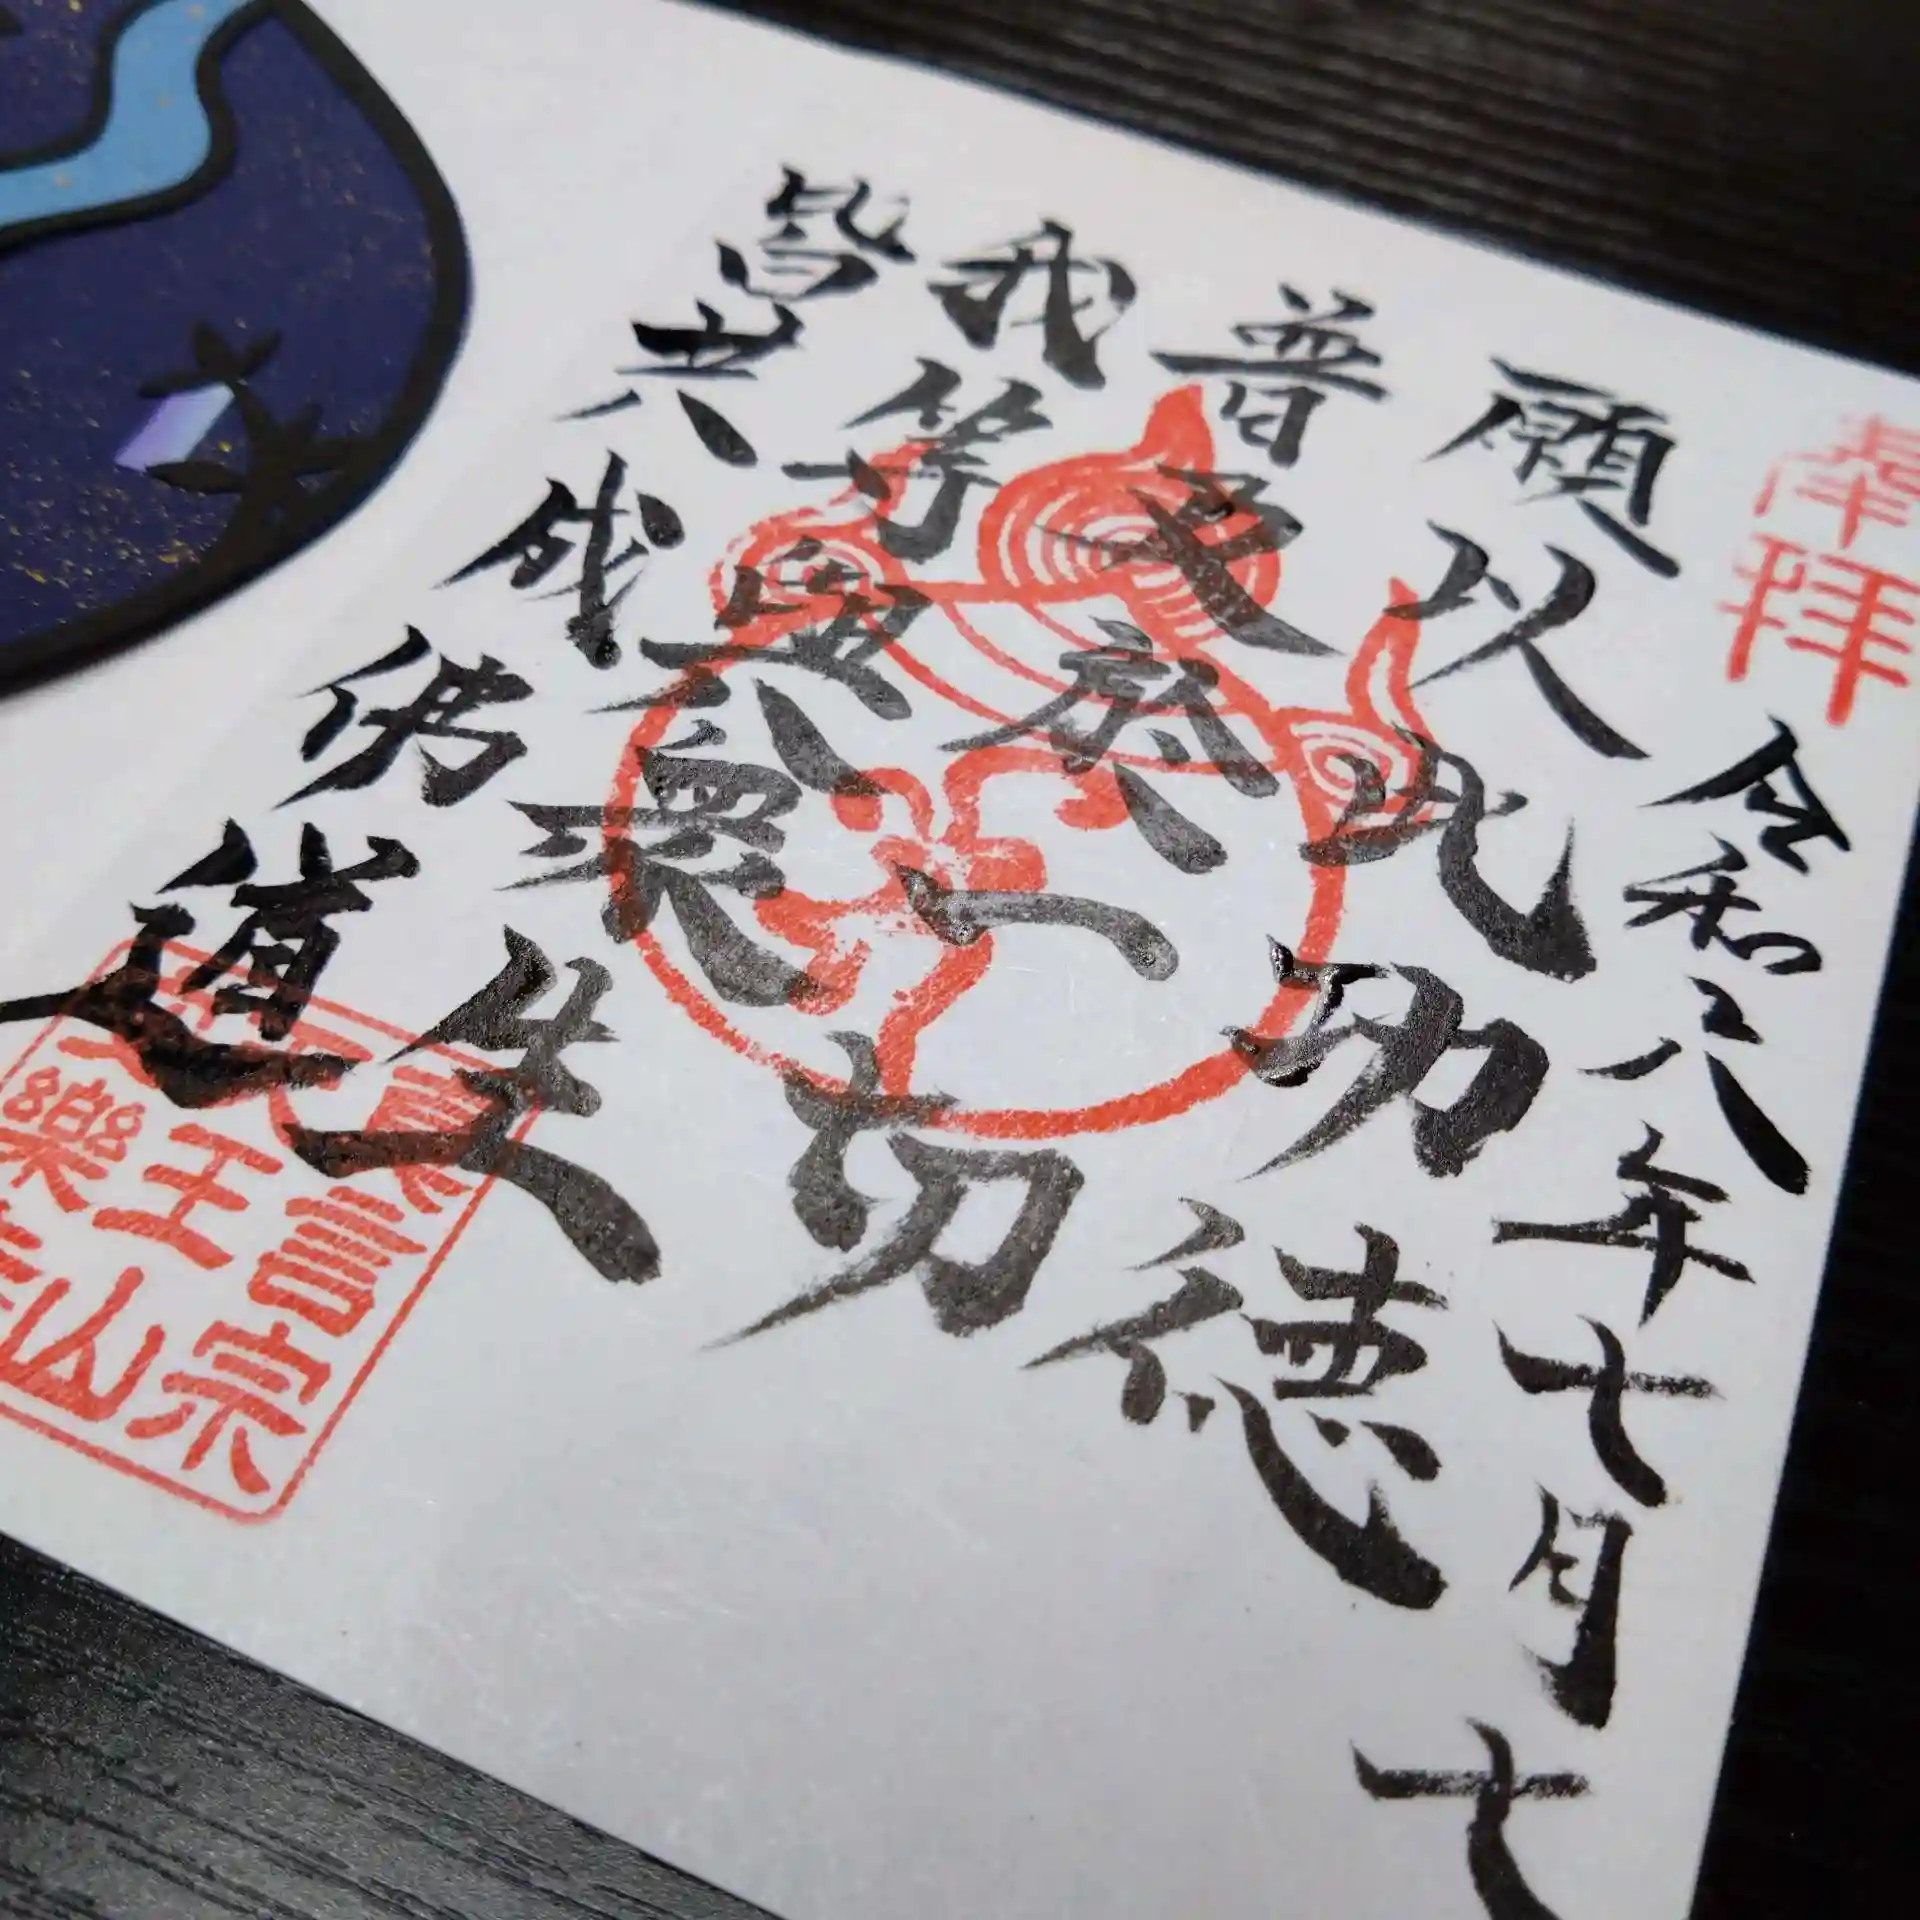 奉拝
令和六年七月七
願以此功徳
普及於一切
我等與衆生
皆共成佛道
真言宗
王山
樂